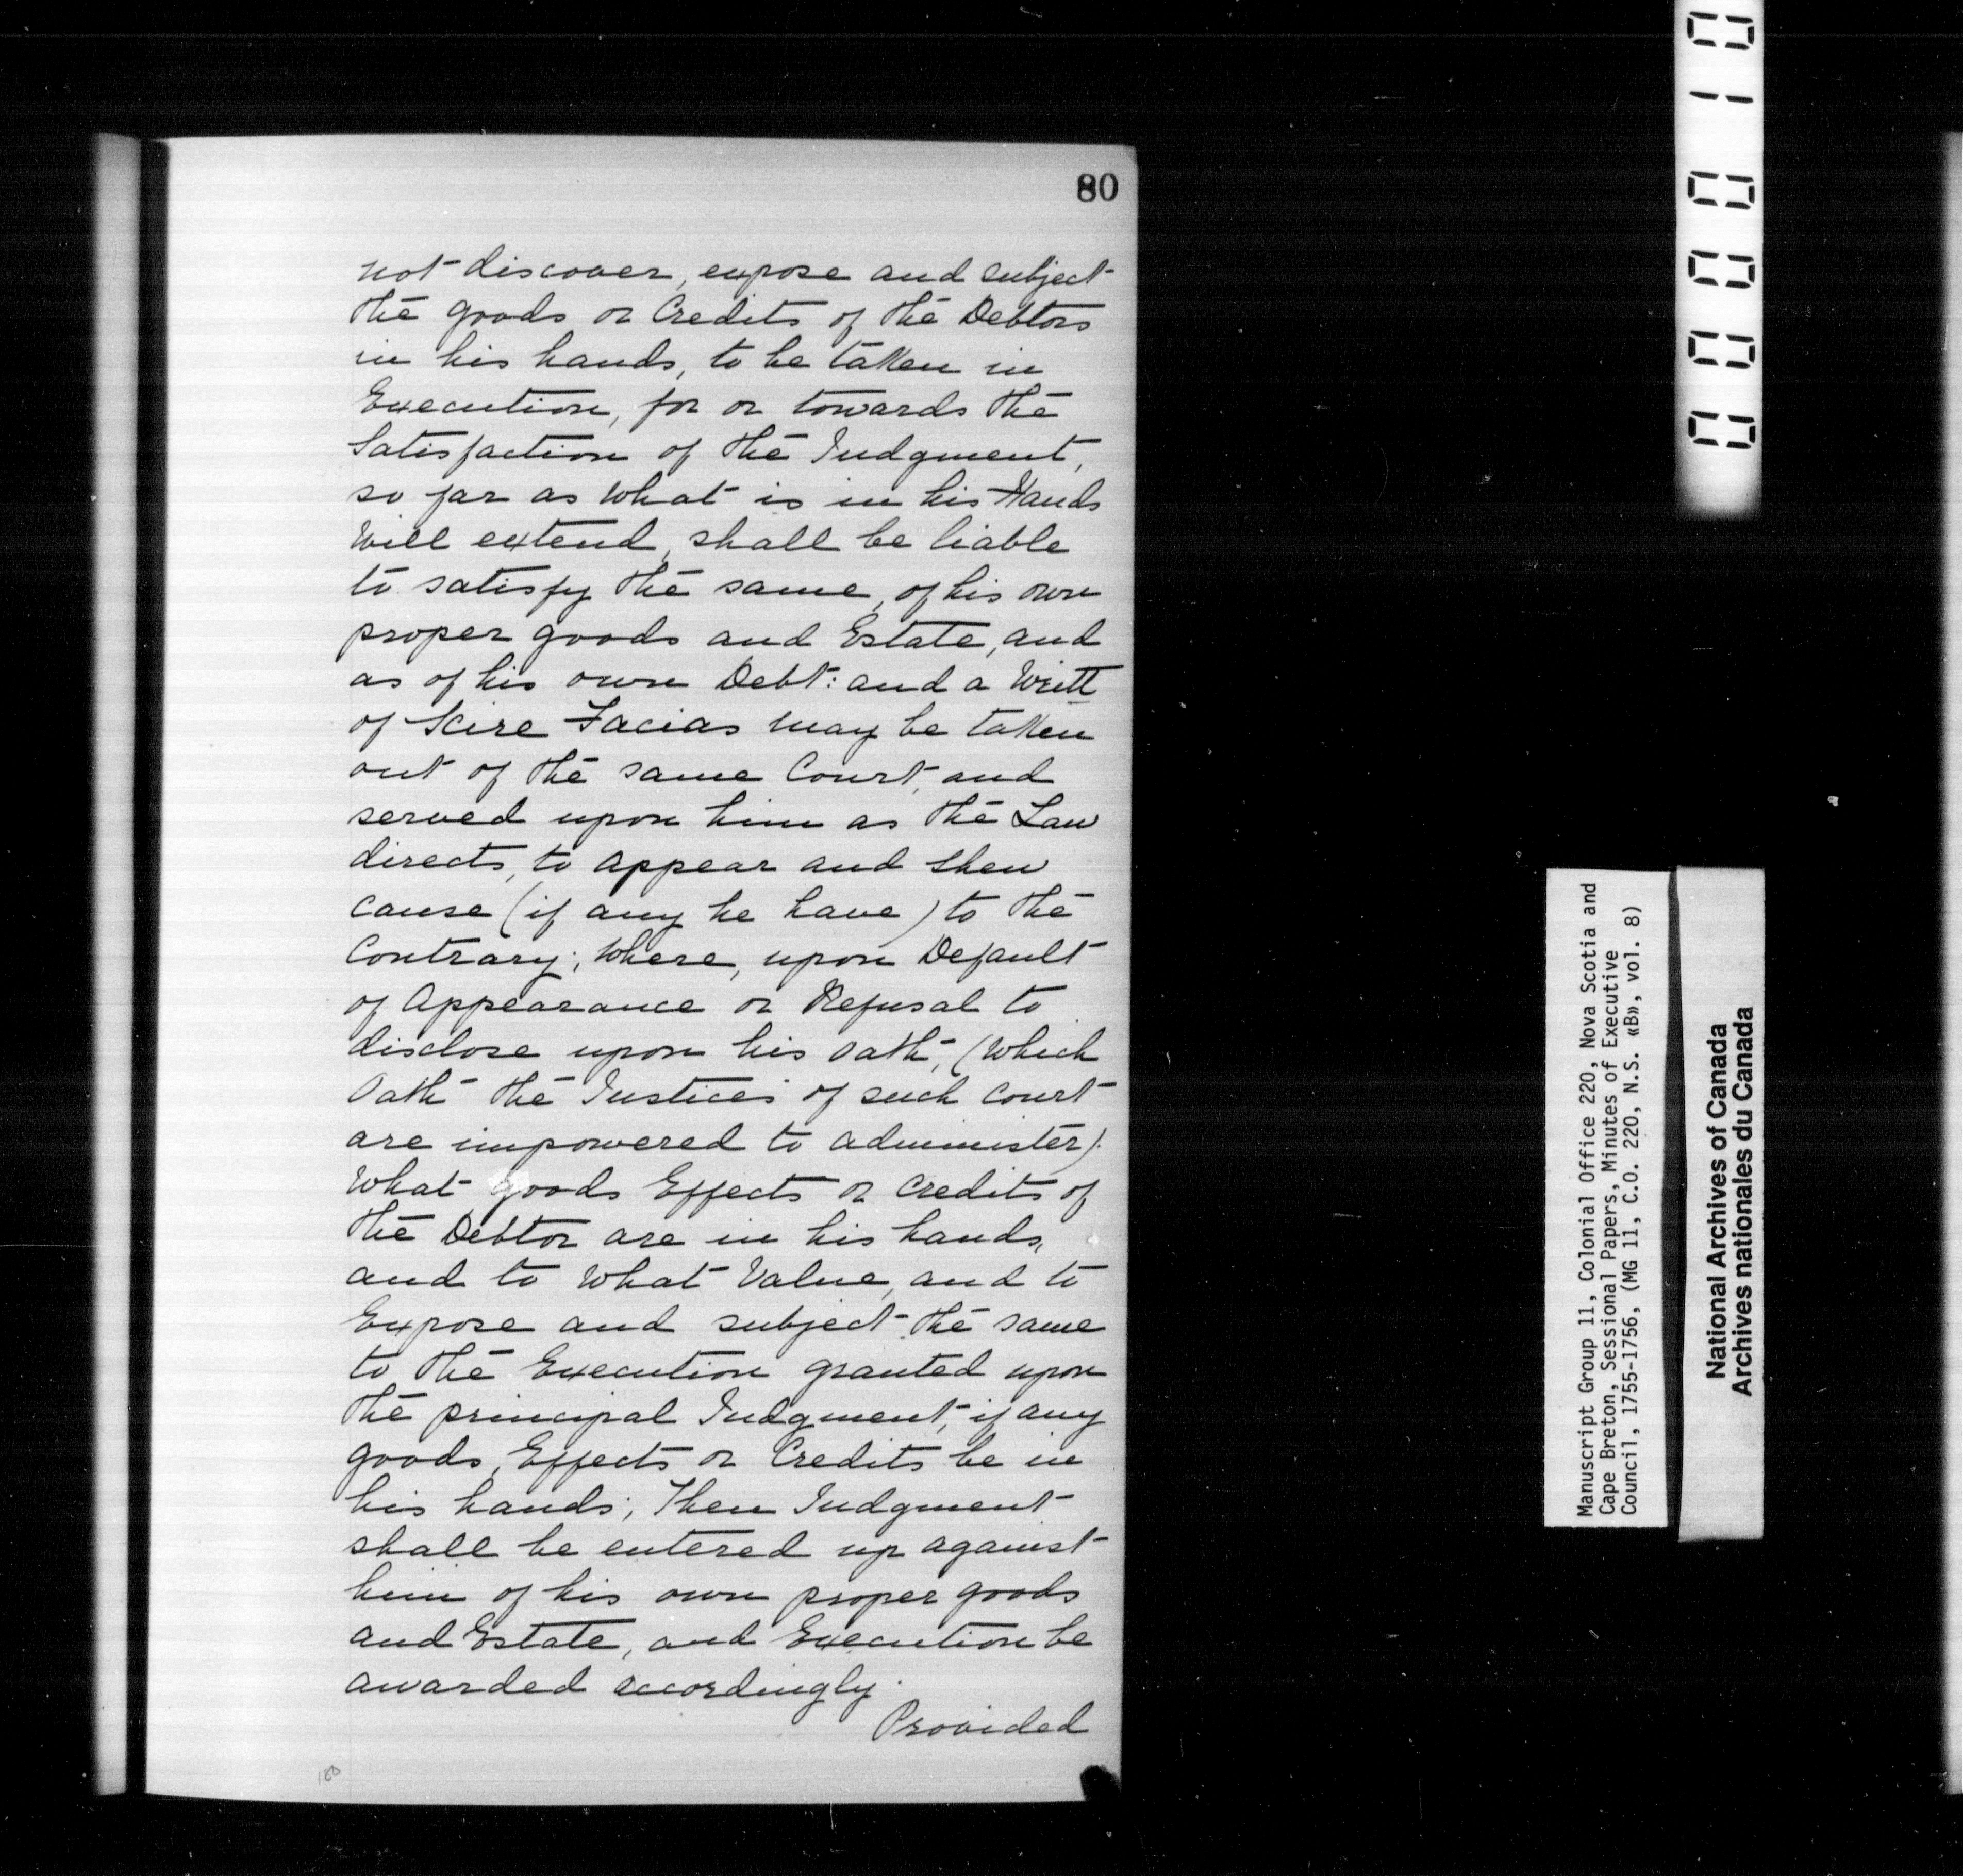 80
not discover, expose and subject
the goods or Credits of the Debtors
in his hands, to be taken in
Execution, for or towards the
Satisfaction of the Judgment,
so far as what is in his Hands
will extend, shall be liable
to satisfy the same, of his own
proper goods and Estate, and
as of his own Debt: and a Writt
of Scire Facias may be taken
out of the same Court, and
served upon him as the Law
directs, to appear and shew
cause (if any he have) to the
Contrary; Where, upon Default
of Appearance or Refusal to
disclose upon his oath, (which
Oath the Justices of such Court
are impowered to administer).
What goods Effects or Credits of
the Debtor are in his hands,
and to what Value, and to
Expose and subject the same
to the Execution granted upon
the principal Judgment, if any
goods, Effects or Credits be in
his hands; Then Judgment
shall be entered up against
him of his own proper goods
and Estate, and Execution be
awarded accordingly.
Provided
180
000010
Manuscript Group 11, Colonial Office 220, Nova Scotia and
Cape Breton, Sessional Papers, Minutes of Executive
Council, 1755-1756, (MG 11, C.O. 220, N.S. «B», vol. 8)
National Archives of Canada
Archives nationales du Canada